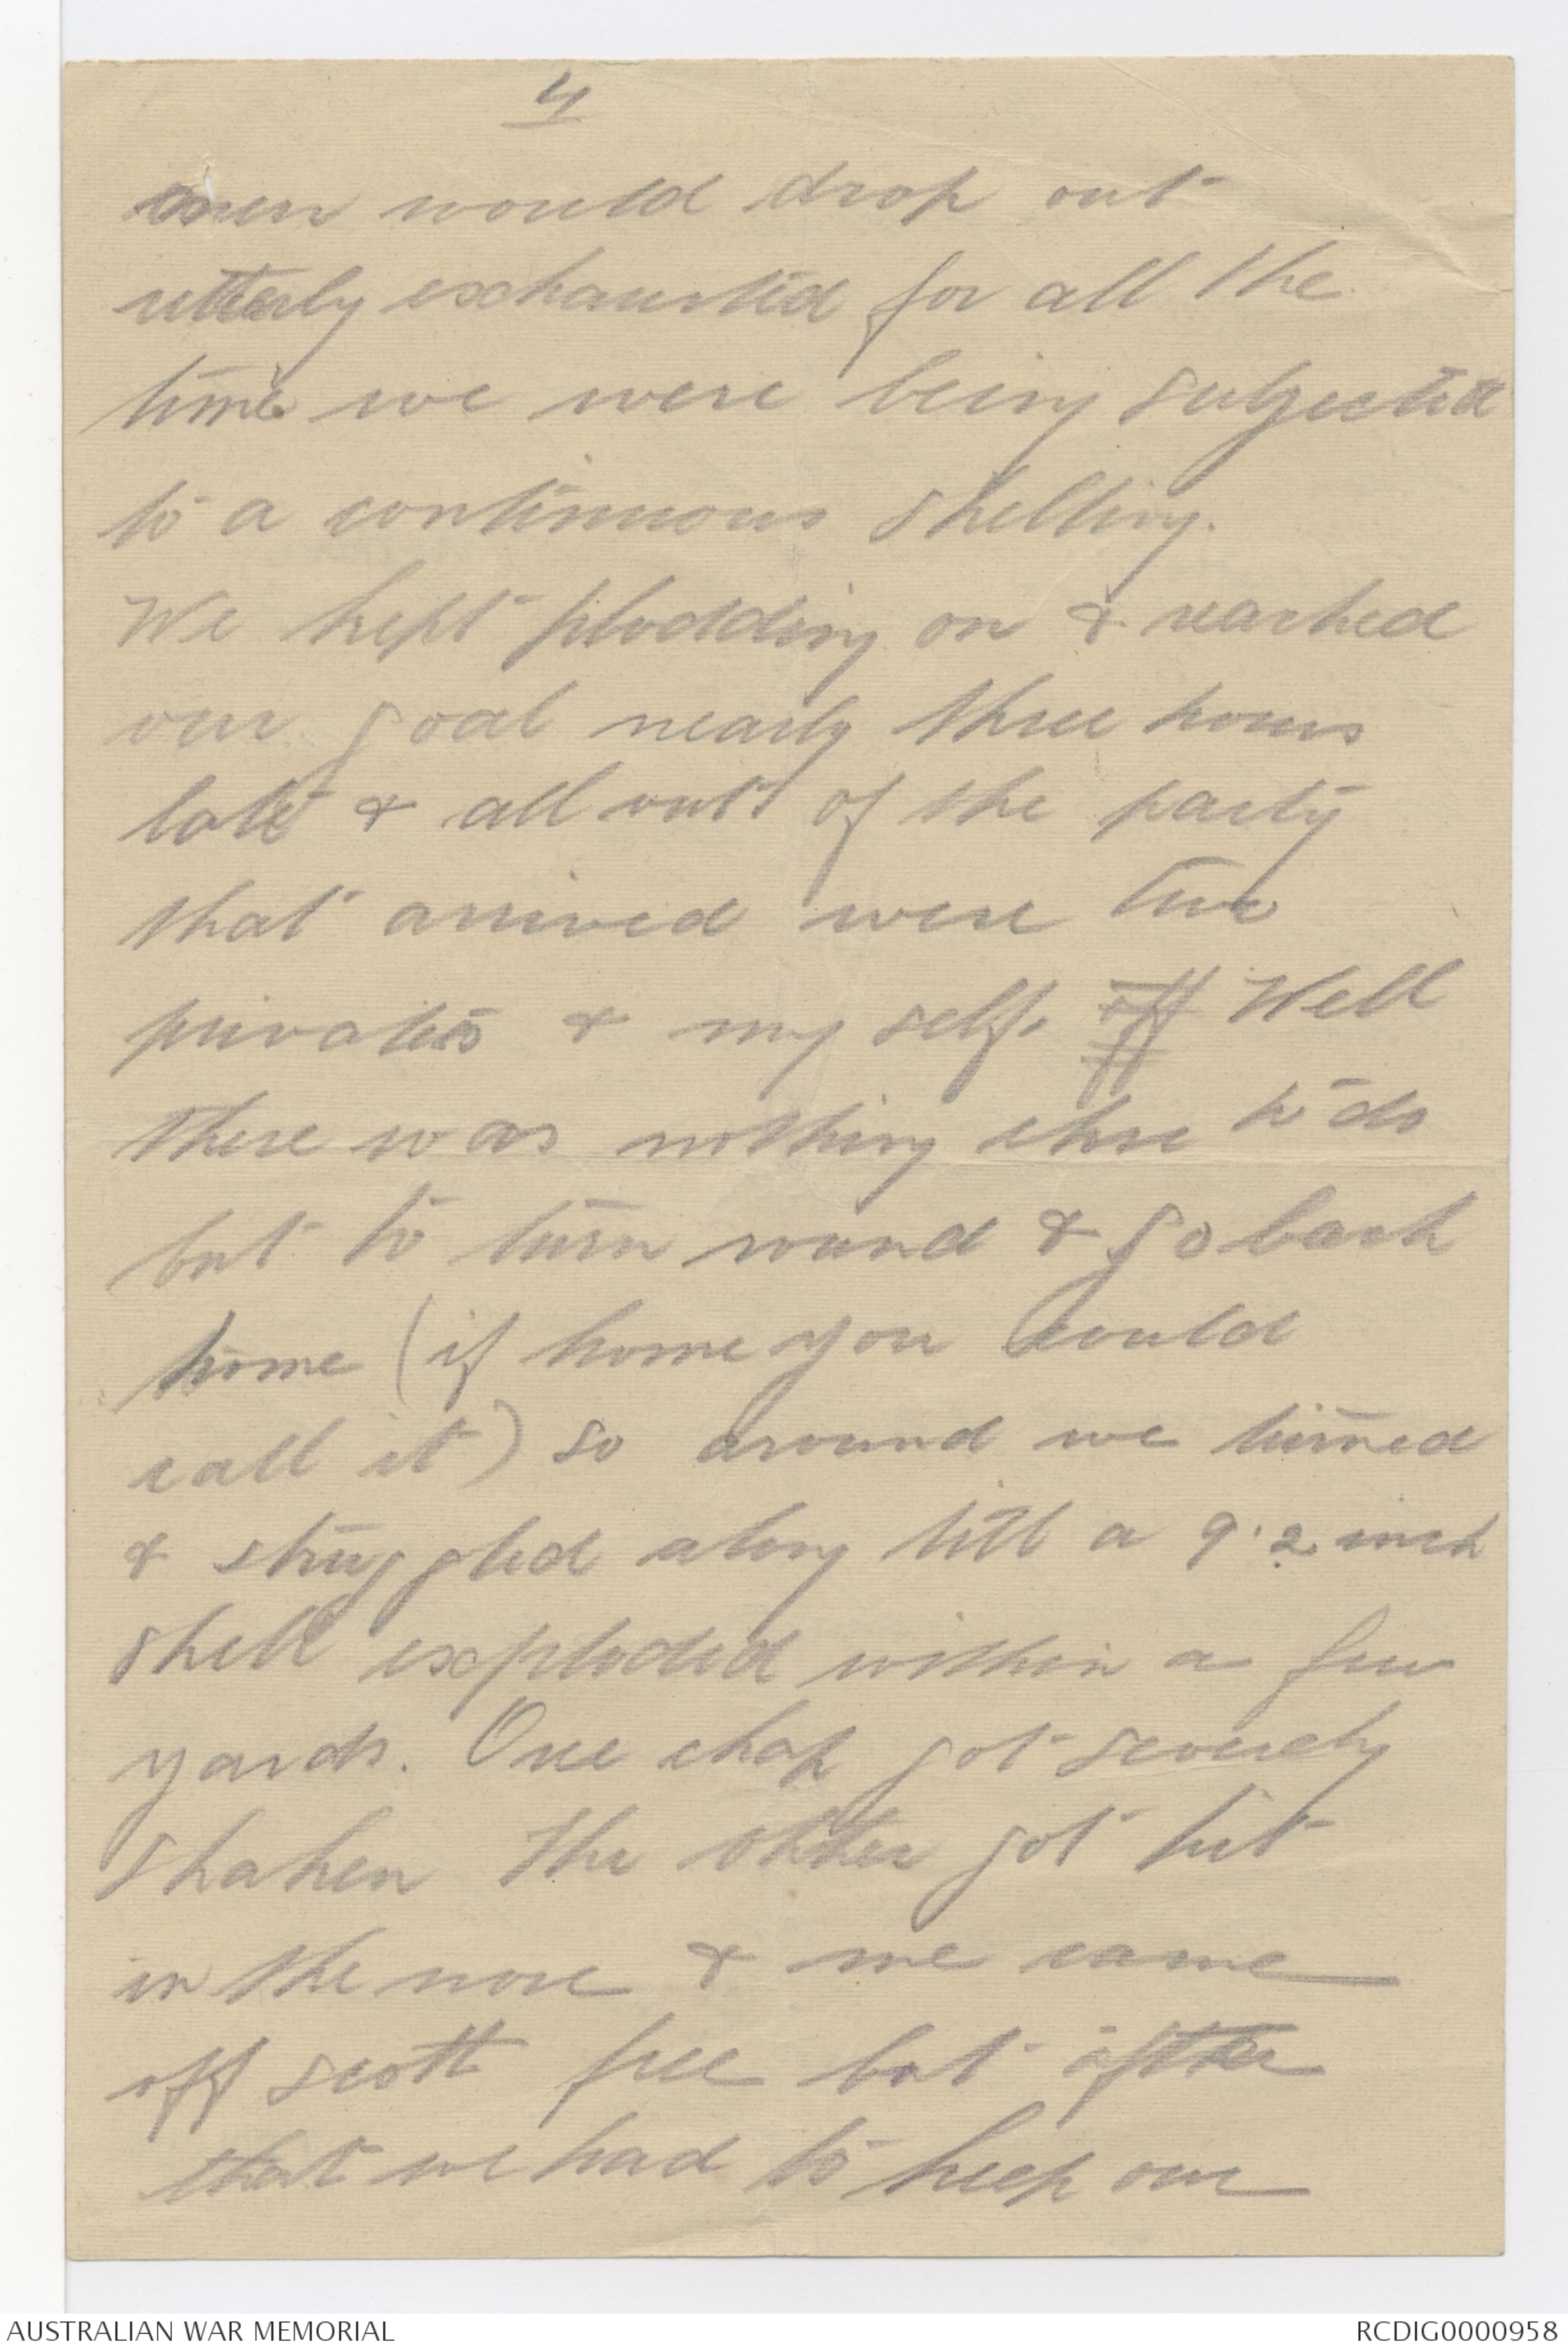 4
men would drop out
utterly exhausted for all the
time we were being subjected
to a continuous shelling.
We kept plodding on & reached
our goal nearly three hours
late & all out of the party
that arrived were two
privates & my self. off Well
there was nothing else to do
but to turn round & go back
home (if home you could
call it) so around we turned
& struggled along till a 9.2 inch
shell exploded within a few
yards. One chap got severely
shaken The other got hit
in the nose & me came
off scott free but after
that we had to keep our
AUSTRALIAN WAR MEMORIAL
RCDIG0000958